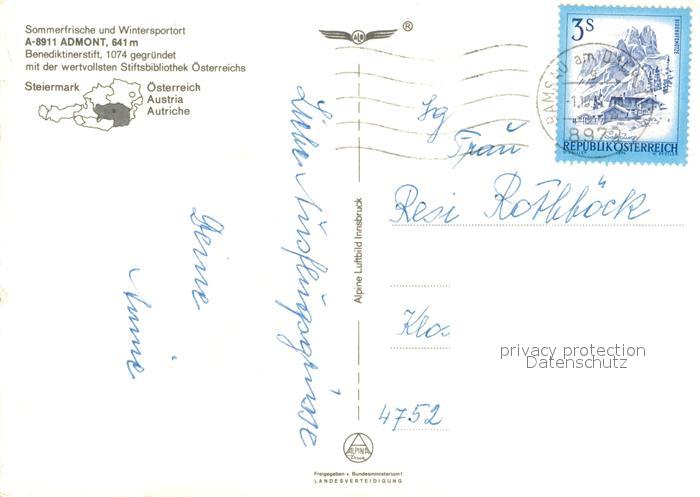 Sommerfrische und Wintersportort
A-8911 ADMONT, 641 m
Benediktinerstift, 1074 gegründet
mit der wertvollsten Stiftsbibliothek Österreichs
Steiermark
Österreich
Austria
Autriche
ALB
®
3 S
BISCHOFSMÜTZE
REPUBLIK ÖSTERREICH
RAMSAU am DACHSTEIN
8972
Liebe Ausflugsgrüsse
Deine
Annie
Alpine Luftbild Innsbruck
Sg
Frau
Resi Rothböck
Klo
4752
privacy protection
Datenschutz
ALPINA
Druck
Freigegeben v. Bundesministerium f.
LANDESVERTEIDIGUNG